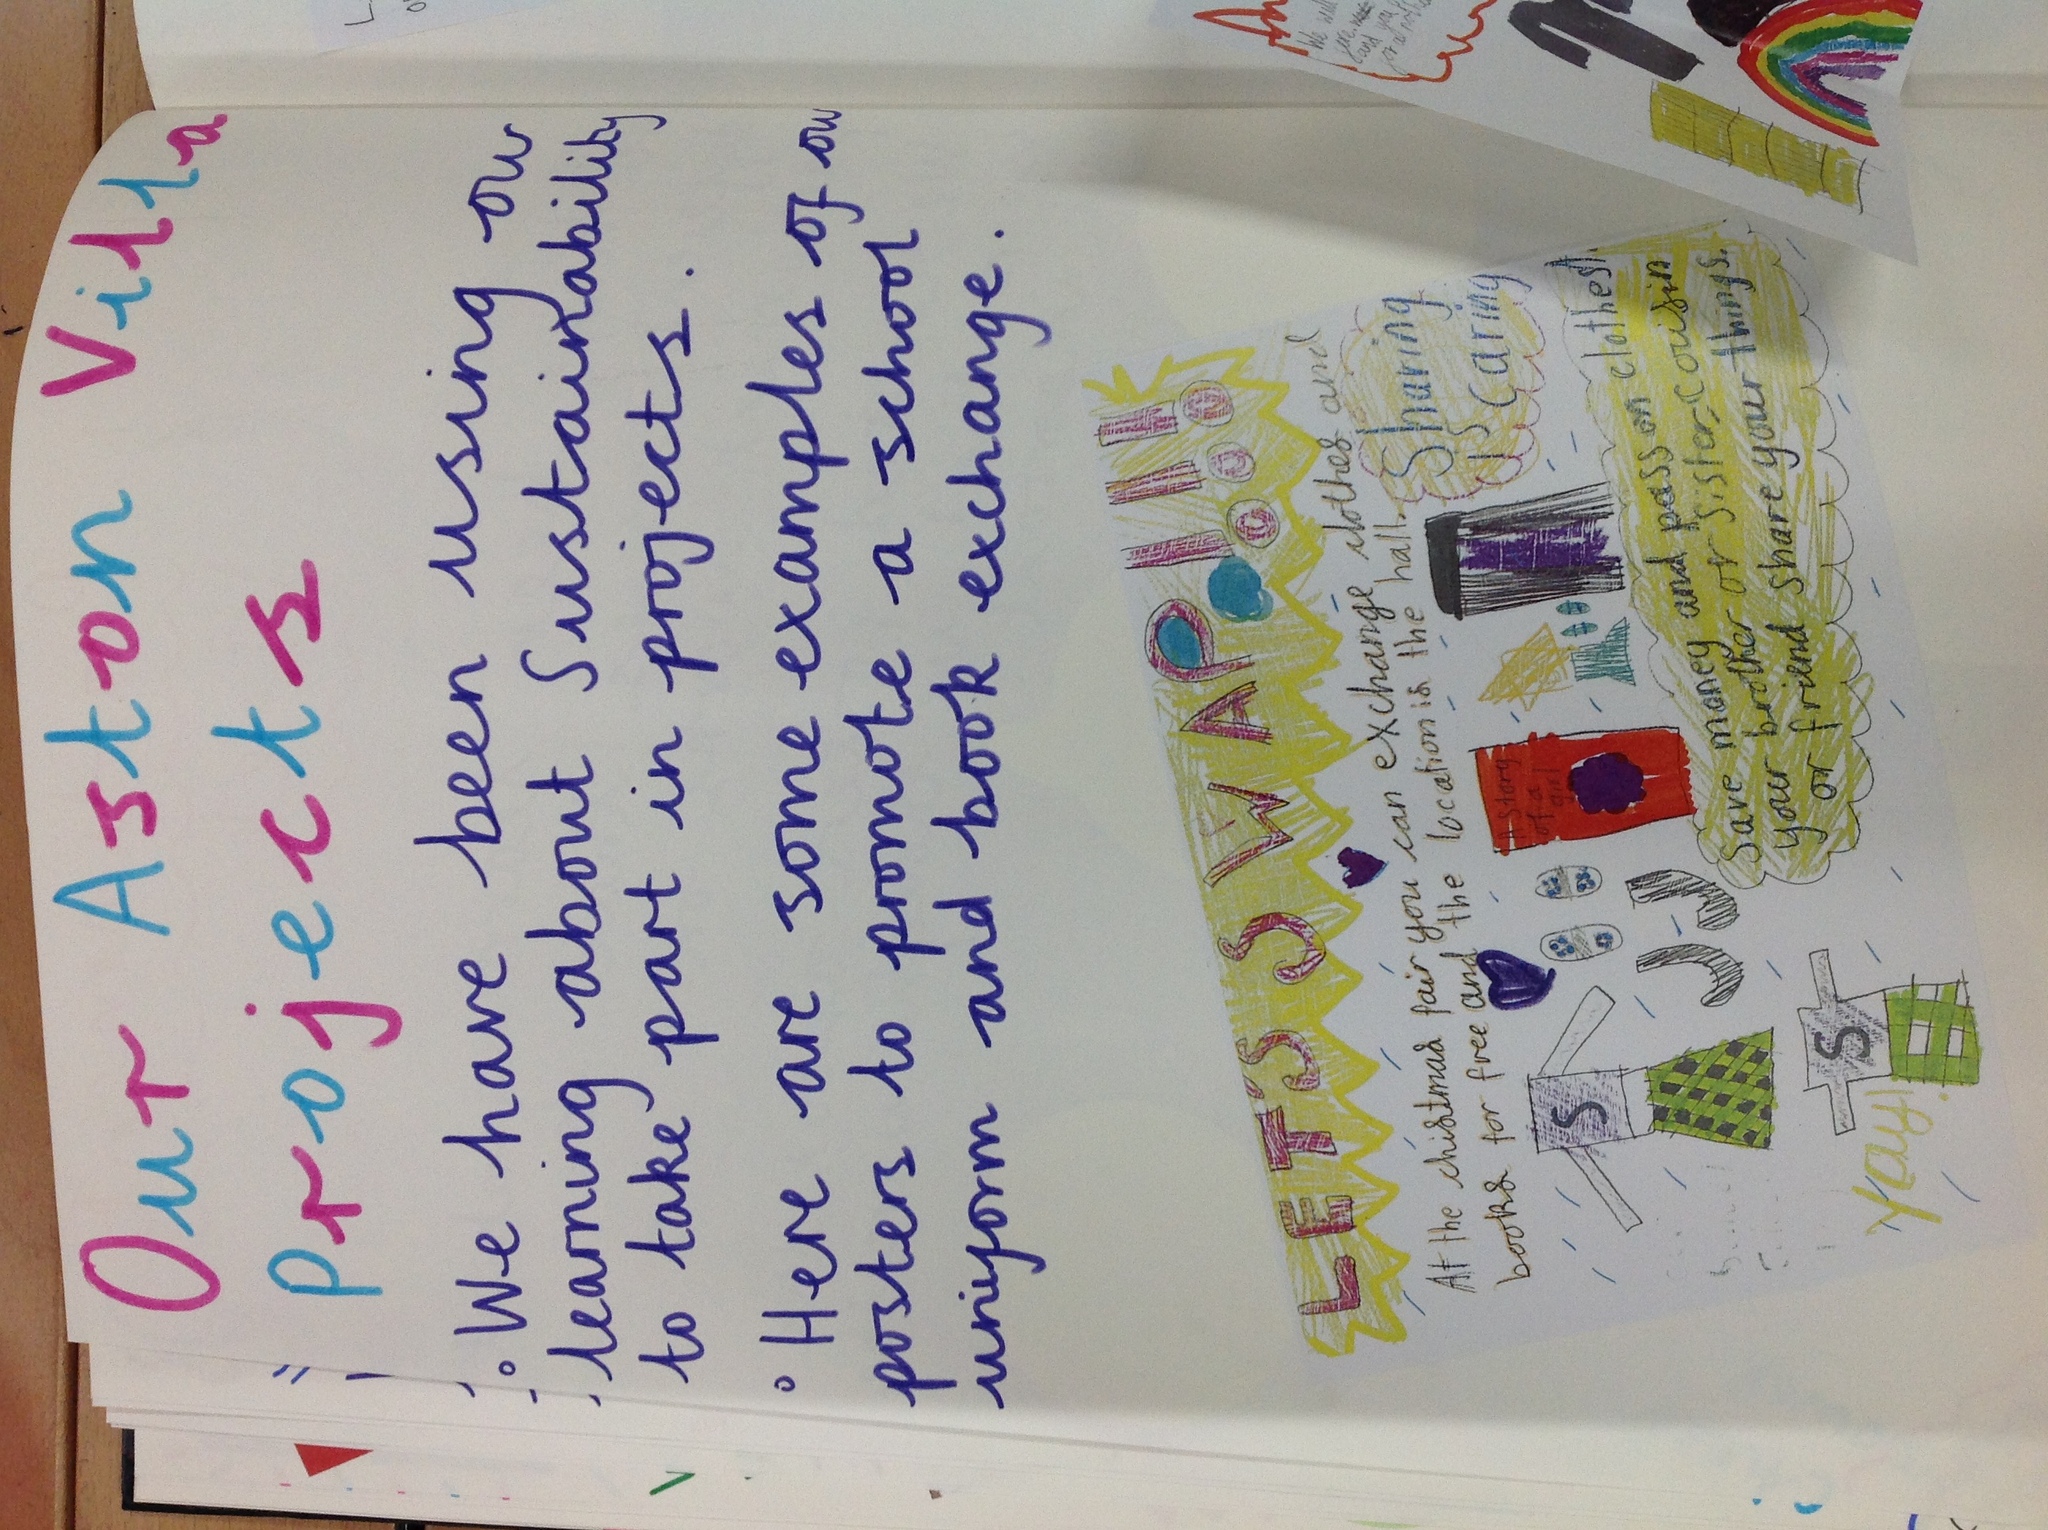 Our Aston Villa
projects
° We have been using our
learning about Sustainability
to take part in projects.
° Here are some examples of our
posters to promote a school
uniform and book exchange.
LET'S SWAP!!!
At the chistmad fair you can exchange clothes and
books for free and the location is the hall.
Sharing
is caring
A story
of a
girl
S
S
Save money and pass on clothes!
your brother or sister, couisin
or friend share your things.
Yay!
We will